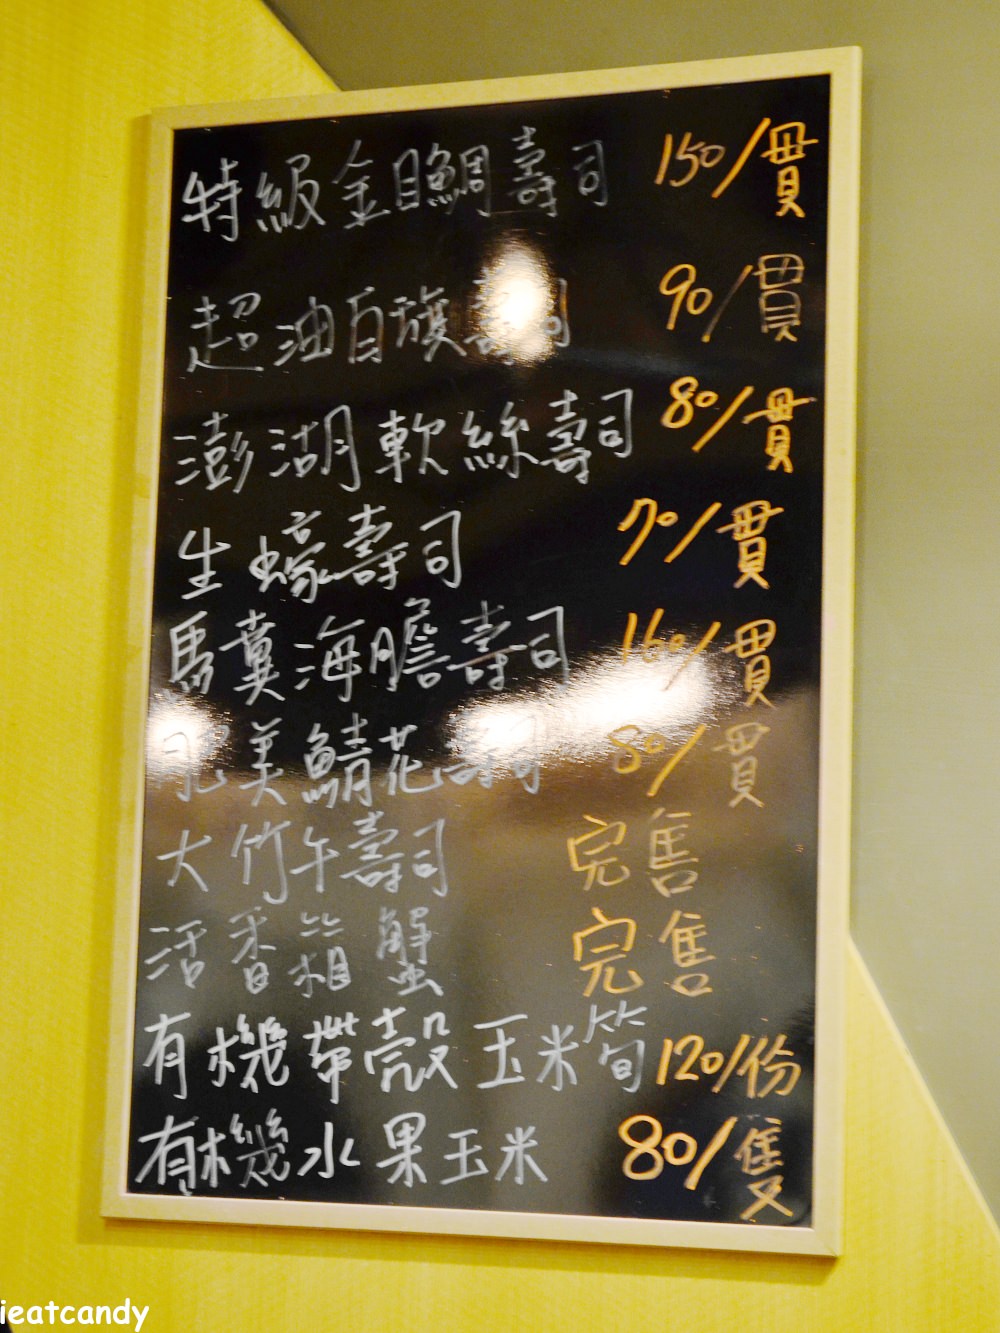 特級金目鯛壽司 150/貫
超油白旗壽司 90/貫
澎湖軟絲壽司 80/貫
生蠔壽司 70/貫
馬糞海膽壽司 160/貫
肥美鯖花壽司 80/貫
大竹午壽司 完售
活香箱蟹 完售
有機帶殼玉米筍 120/份
有機水果玉米 80/隻
ieatcandy